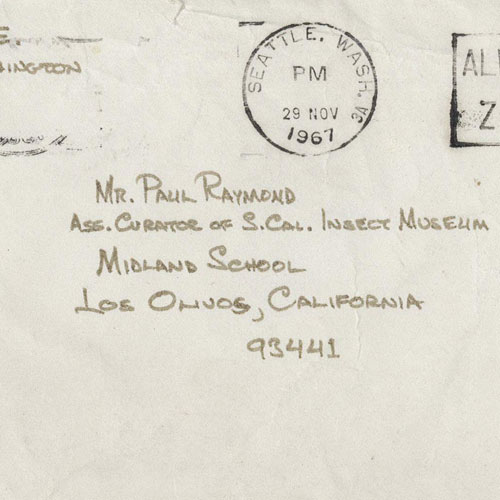 HINGTON
SEATTLE, WASH. 3A
PM
29 NOV
1967
AL
Z
MR. PAUL RAYMOND
ASS. CURATOR OF S. CAL. INSECT MUSEUM
MIDLAND SCHOOL
LOS OLIVOS, CALIFORNIA
93441